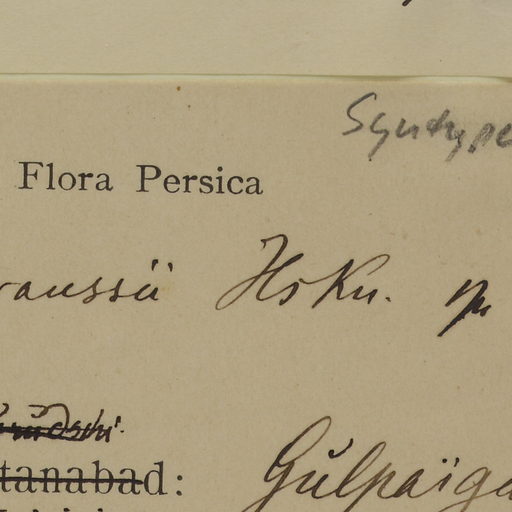 Syntype
Flora Persica
raussii HsKn.
tanabad: Gulpaïga